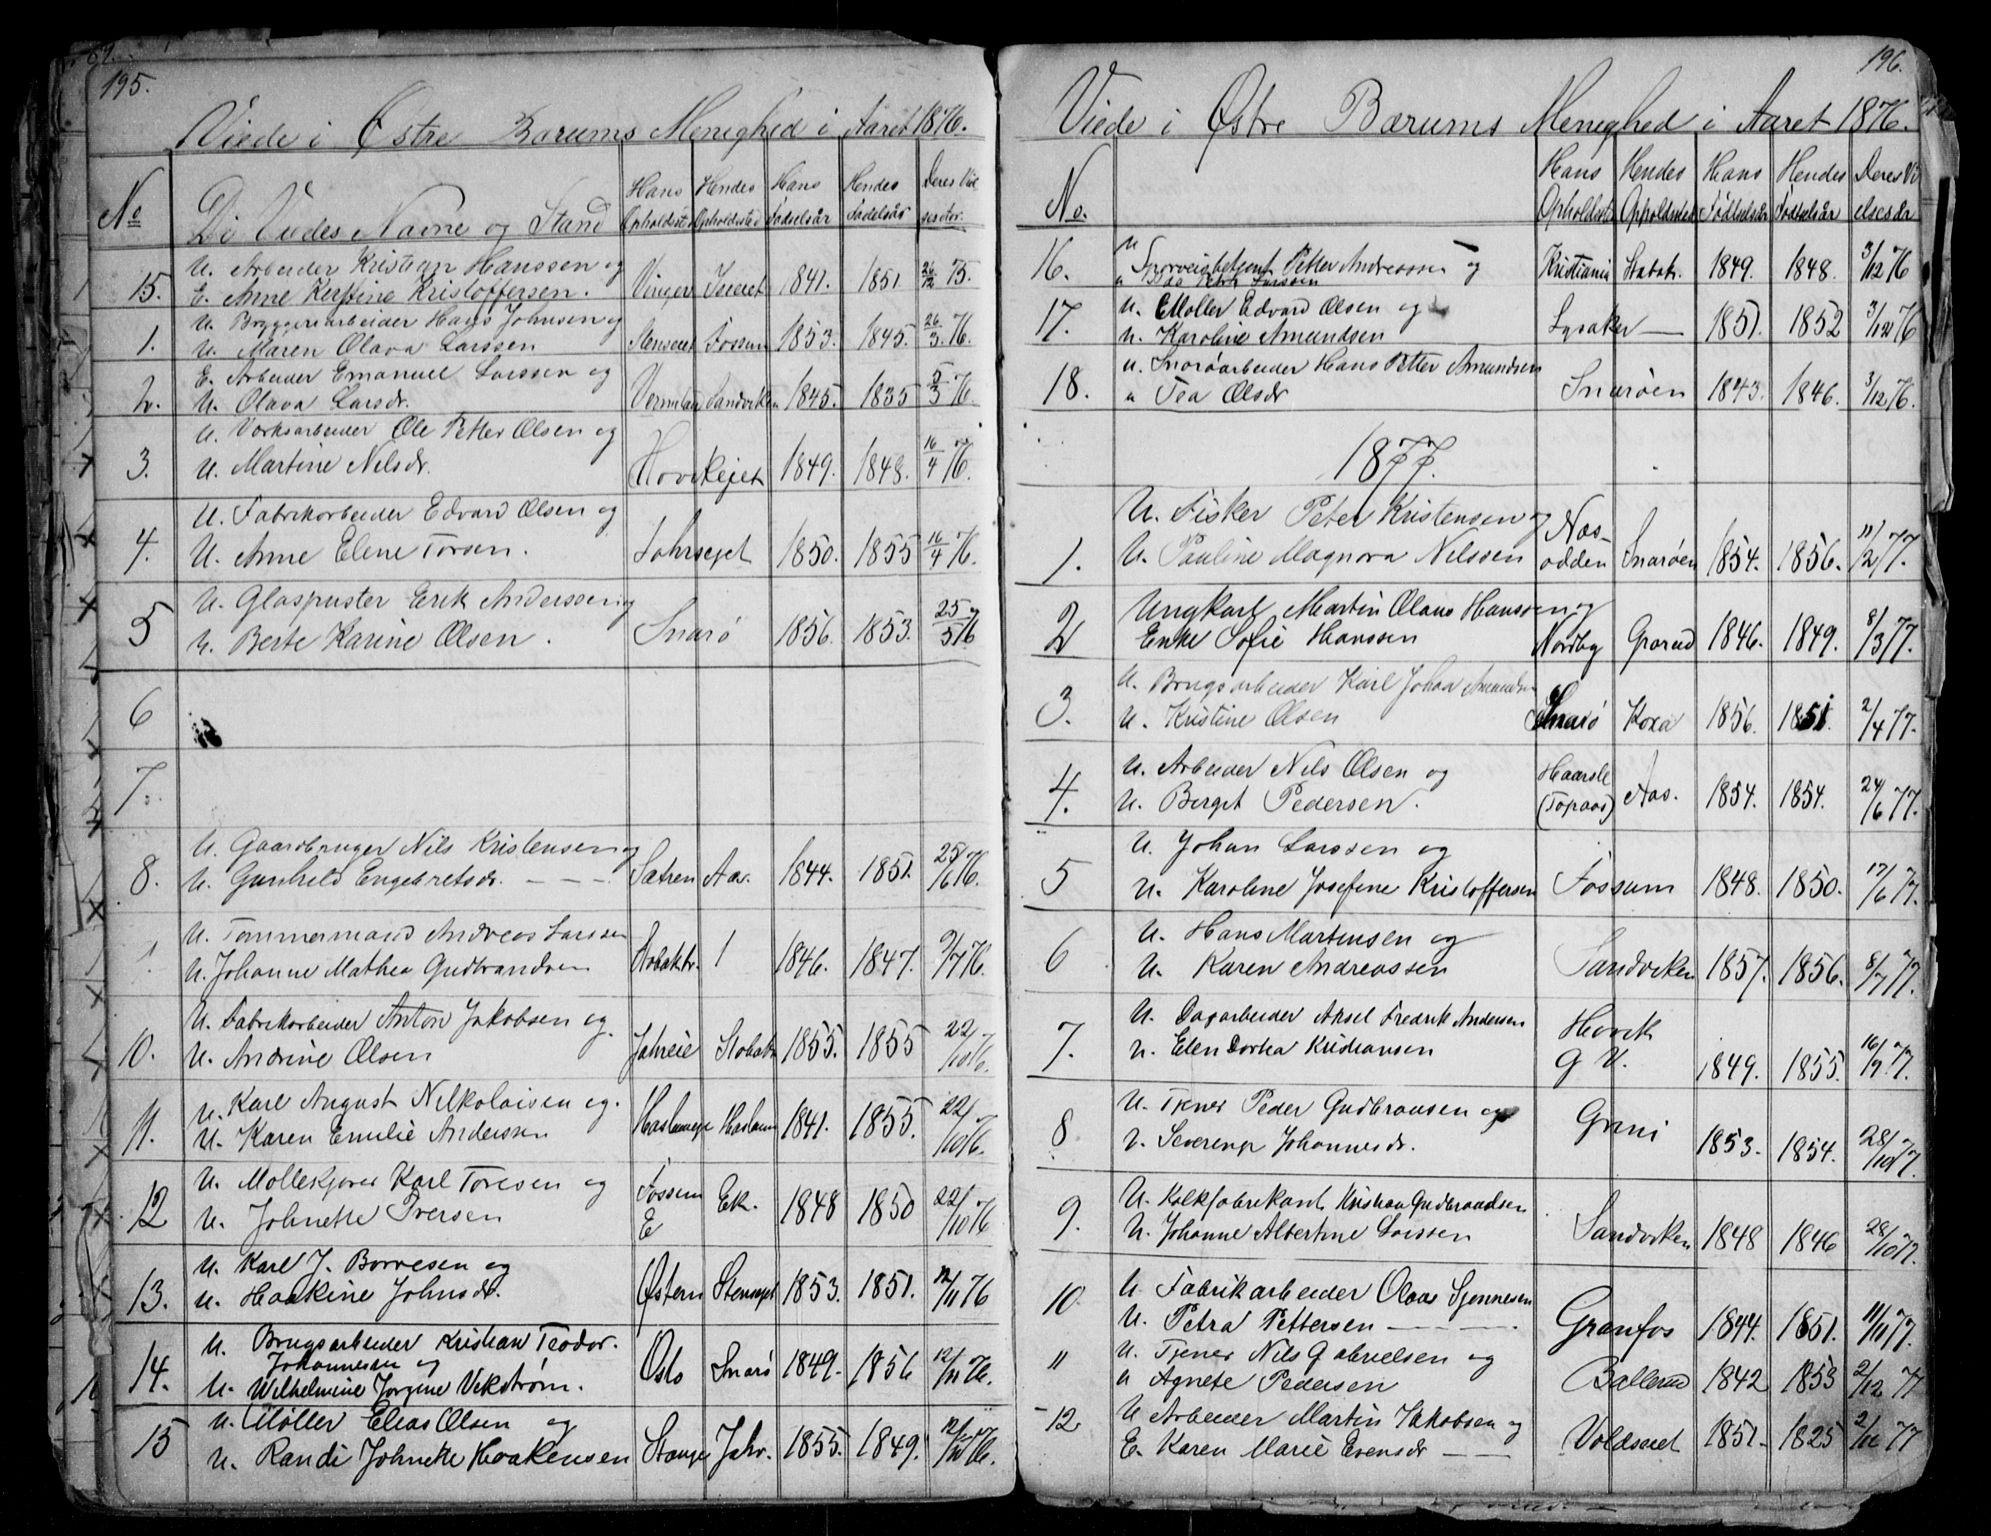 195.
Viede i Østre Bærums Menighed i Aaret 1876.
No De Viedes Navne og Stand Hans Opholdsst Hendes Opholdssted Hans Fødselsår Hendes Fødelsår Deres Viel
U. Arbeider Kristian Hanssen og
15. E. Anne Kristoffersen. Vinger 1841. 1851 26/12 75.
U. Bryggeriarbeider Hans Johnsen og
1. U. Maren Olava Larssen Fossum 1853. 1845. 26/3 76.
E. Arbeider Emanuel Larssen og
2. U. Olava Larsdr. Vermland Sandviken 1845. 1835 5/3 76.
U. Værksarbeider Ole Petter Olsen og
3. U. Martine Nilsdr. Hovikejet 1849. 1848. 16/4 76.
U. Fabrikarbeider Edvard Olsen og
4. U. Anne Elene Torsen. Jahrsejet 1850. 1855 16/4 76.
U. Glaspuster Erik Anderssen og
5 U. Berte Karine Olsen. Snarø 1856. 1853. 25/5 76
6
7.
U. Gaardbruger Nils Kristensen og
8. U. Gunhild Engebretsdr. - - - Sætren Aa. 1844. 1851. 25/6 76.
U. Tømmermand Andreas Larssen
U. Johanne Mathea Gudbrandsen 1846. 1847. 9/7 76.
U. Fabrikarbeider Anton Jakobsen og.
10. U. Andrine Olsen Stabæk 1855. 1855 22/10 76.
U. Karl August Nilkolaisen og.
11. U. Karen Emilie Anderssen Haslum 1841. 1855. 22/10 76.
U. Møllekjører Karl Toresen og
12 U. Johnette Iversen Fossum E Ek. 1848 1850 22/10 76
U. Karl J. Borresen og
13. U. Haakine Johnsdr. Østern 1853. 1851. 12/11 76
U. Brugsarbeider Kristian Teodor.
Johannesen og
14. U. Wilhelmine Jørgine Vikstrøm. Oslo Snarø 1849. 1856 12/11 76.
U. Møller Elias Olsen og
15 U. Randi Johneke Haakensen Stange Jahr. 1855. 1849. 12/11 76.
196.
Viede i Østre Bærums Menighed i Aaret 1876.
No. Hans Opholdsst Hendes Opholdssted Hans Fødselsår Hendes Fødselsår Deres Vi elsesår
U Petter Andreassen og
16. Petra Larssen Kristiania Stabæk. 1849. 1848. 3/12 76
U. Møller Edvard Olsen og
17. U. Karoline Amundsen Lysaker — 1851. 1852 3/12 76
U. Snarøarbeider Hans Petter Amundsen
18. " Tea Olsdr Snarøen 1843. 1846. 3/12 76.
1877.
U. Fisker Peter Kristensen og
1. U. Pauline Magnora Nilssen Næsodden Snarøen 1854. 1856. 11/2 77.
Ungkarl Martin Olaus Hanssen og
2 Enke Sofie Hanssen Nordby Grorud 1846. 1849. 8/3 77.
U. Brugsarbeider Karl Johan Amundsen
3. U. Kristine Olsen Snarø Koxa 1856. 1851. 2/4 77.
U. Arbeider Nils Olsen og
4. U. Berget Pedersen. (Topaas) Aas. 1854. 1854. 24/6 77.
U. Johan Larssen og
5 U. Karoline Josefine Kristoffersen Fossum 1848. 1850. 17/6 77.
U. Hans Martinsen og
6 U. Karen Andreassen Sandviken 1857. 1856. 8/7 77.
U. Dagarbeider Aksel Fredrik Andersen
7. U. Elen Dortea Kristiansen Høvik G V. 1849. 1855. 16/9 77.
U. Tjener Peder Gudbransen og
8. U. Johannesdr. Grini 1853. 1854. 28/10 77.
U. Kalkfabrikant Kristian Gudbrandsen
9. U. Johanne Albertine Larssen Sandviken 1848 1846 28/10 77.
U Fabrikarbeider Olaus
10. U. Petra Pettersen - - - Granfos 1844. 1851. 11/11 77.
U. Tjener Nils Gabrielsen og
11 U Agnete Pedersen Ballerud 1842 1853 2/12 77
U Arbeider Martin Jakobsen og
12. E. Karen Marie Evensdr - - Voldseiet 1851. 1825 77